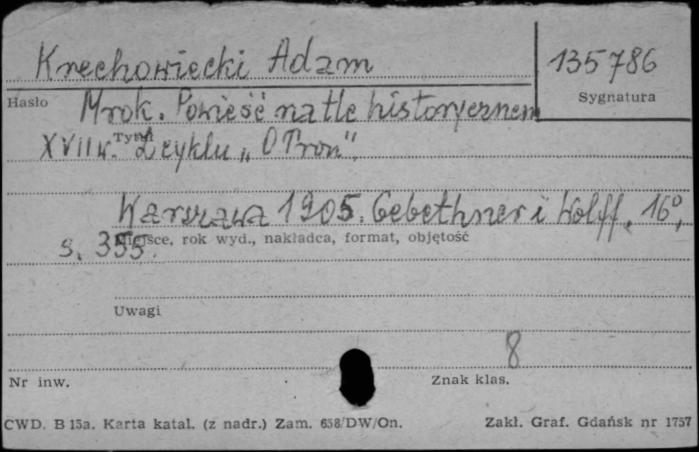 Krechowiecki Adam
135786
Hasło
Sygnatura
Mrok. Powieść na tle historycznem
Tytuł
XVII w. Z cyklu „O Tron".
Warszawa 1905. Gebethner i Wolff. 16°,
Miejsce, rok wyd., nakładca, format, objętość
s. 355.
Uwagi
8
Nr inw.
Znak klas.
CWD. B 15a. Karta katal. (z nadr.) Zam. 658/DW/On.
Zakł. Graf. Gdańsk nr 1757